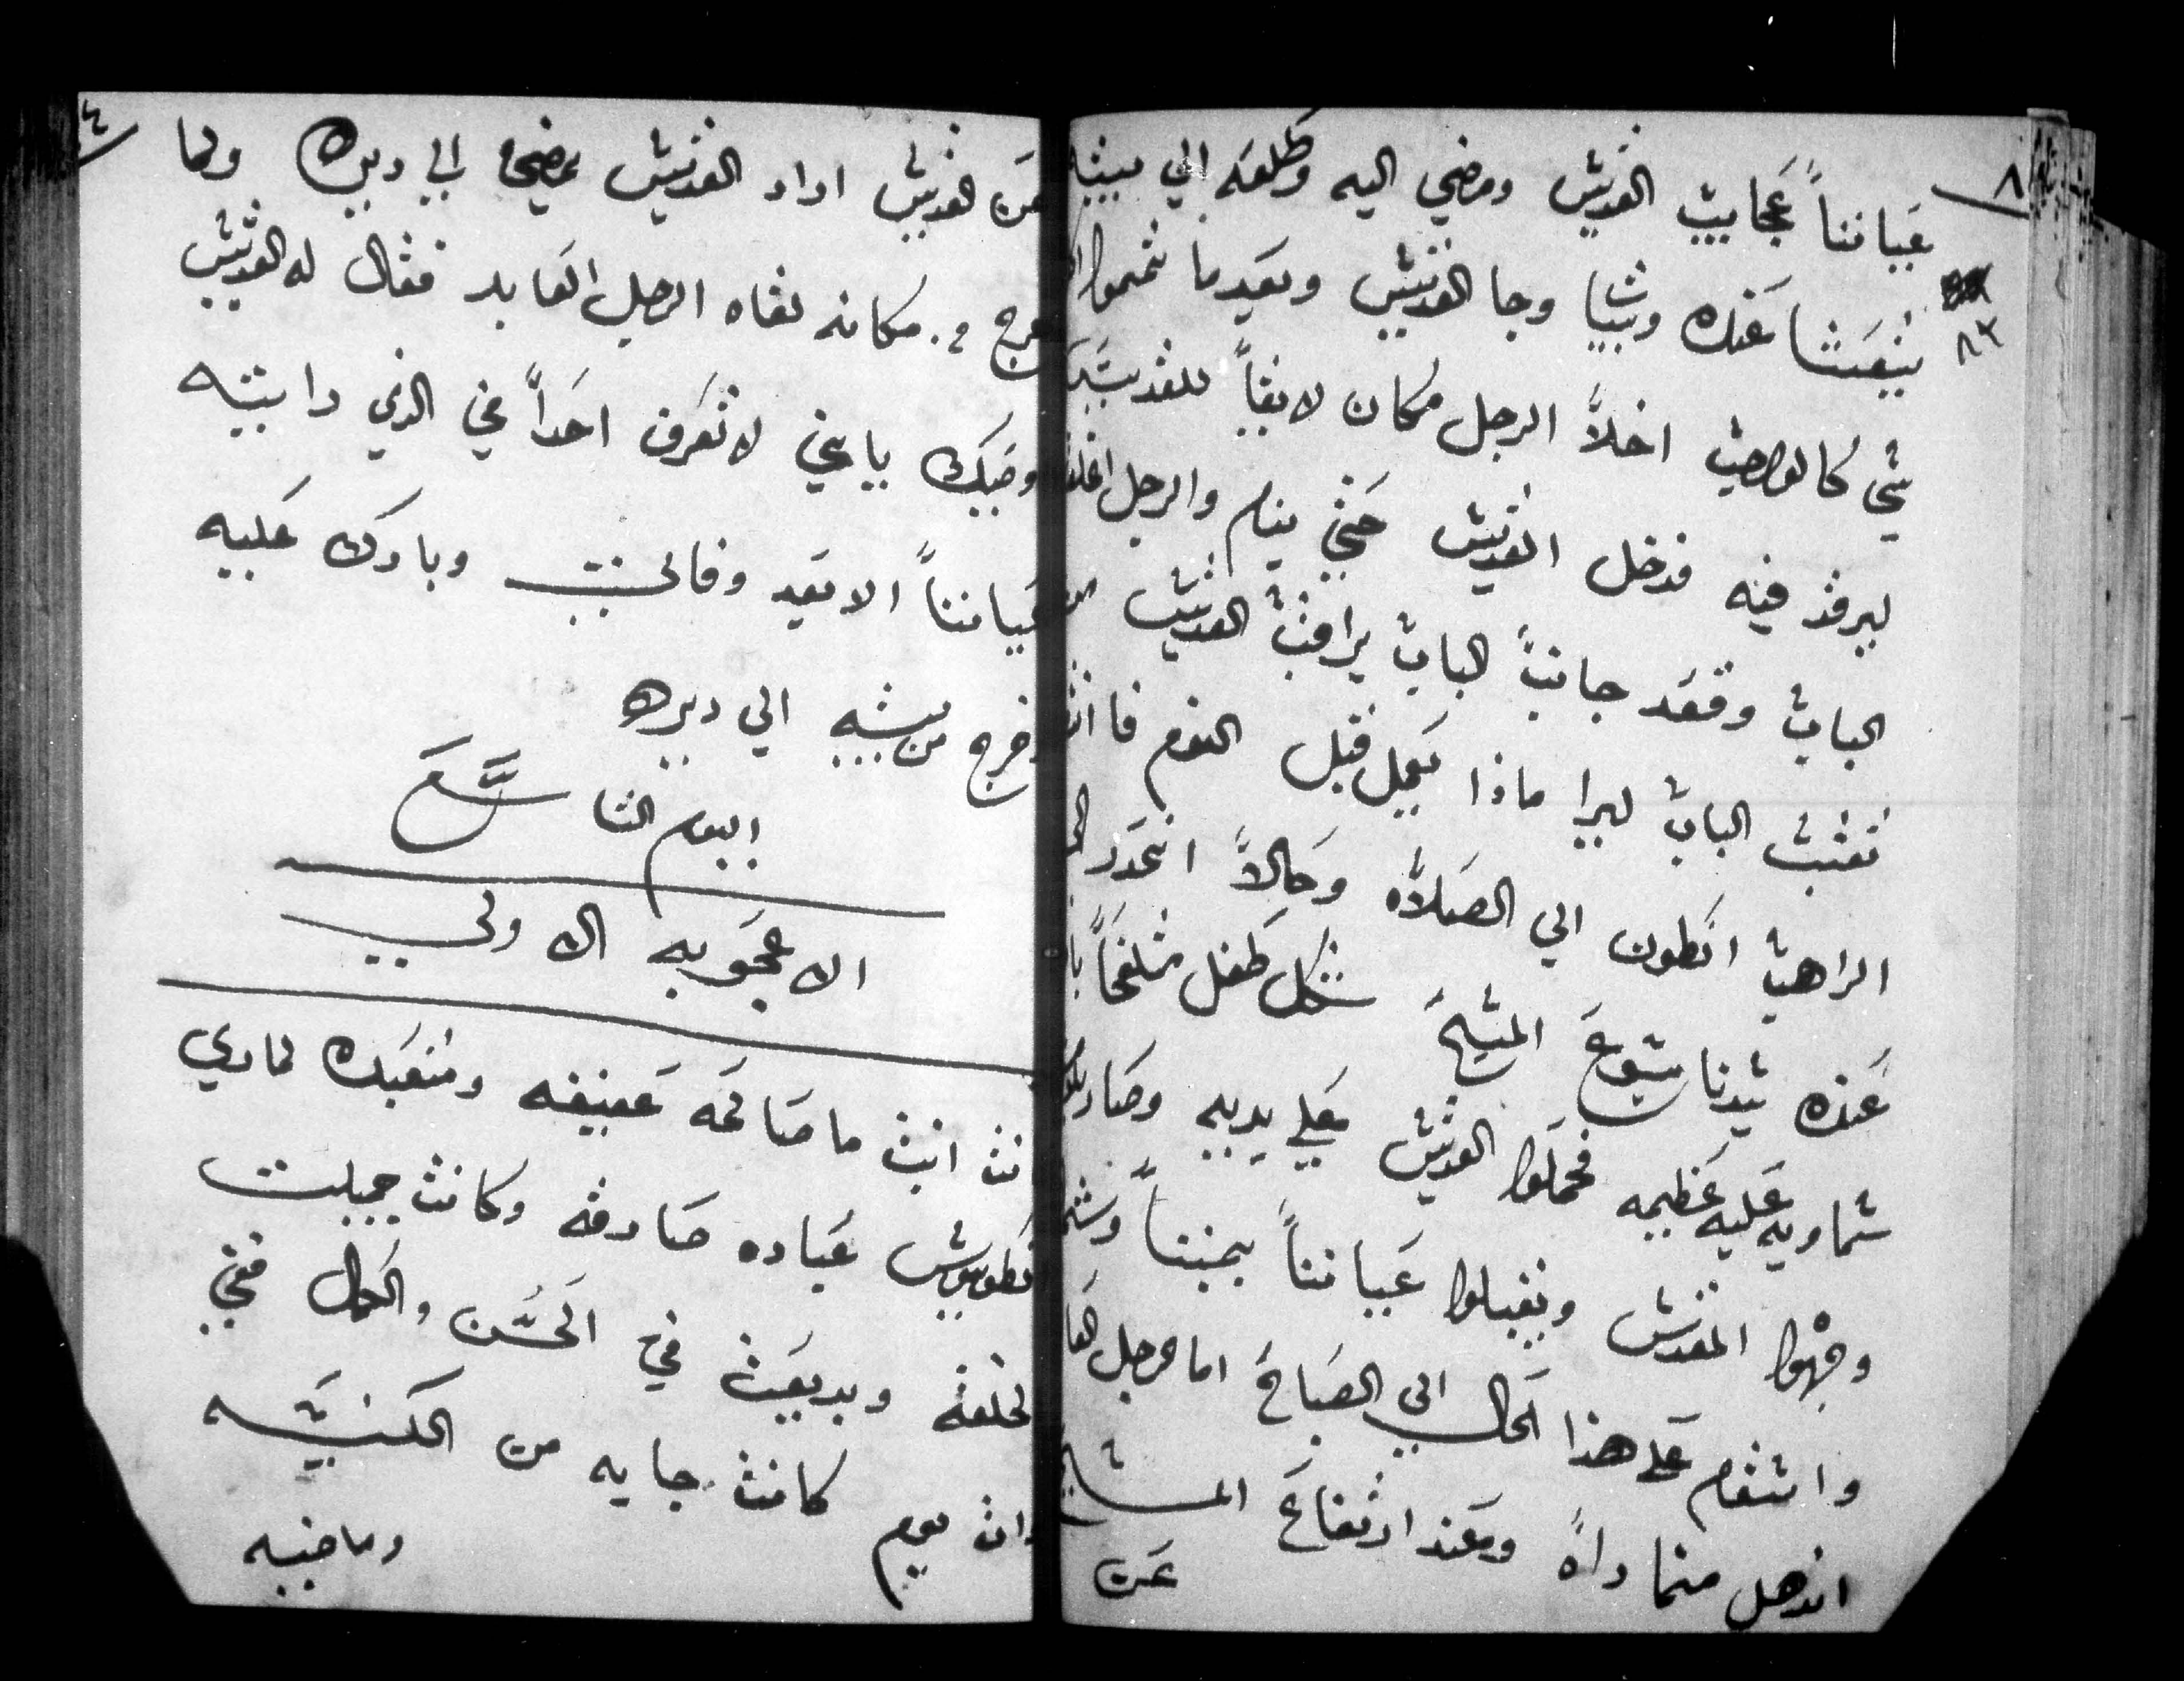 عياننا عجايب القديس ومضي اليه وطلعه الي بيته
يتعشا عنده ويبيا وجا القديس وبعدما تمموا
شي كالواجب اخلا الرجل مكان لايقا للقديس
ليرقد فيه فدخل القديس حتي ينام والرجل اغلق
الباب وقعد جانب الباب يراقب القديس من
نقب الباب ليرا ماذا يعمل قبل النوم فا
الراهب انطون الي الصلاه وحالا انحدر
عنده سيدنا يسوع المسيح شكل طفل متلفحا
سماويه عليه عظيمه فحملوا القديس علي يديه وصار
وجهوا المقدس ويقبلوا عياننا بمننا
واستقام علي هذا الحال الي الصباح اما الرجل
اندهل مما راه وعند ارتفاع
عن
عن القديس اراد القديس يمضي الي ديره ولما
خرج من مكانه لقاه الرجل العابد فقال له القديس
وصيك يابني لا تعرف احدا في الذي رايته
عياننا الا بعد وفاتي وبارك عليه
وخرج من بيته الي ديره
اليوم التاسع
الاعجوبه الاولي
انت صالحه عفيفه ومتعبده لماري
انطونيوس عباده صادقه وكانت جميلت
الخلقه وبديعت في الحسن والجمال ففي
دات يوم كانت جايه من الكنيسه
وماضيه